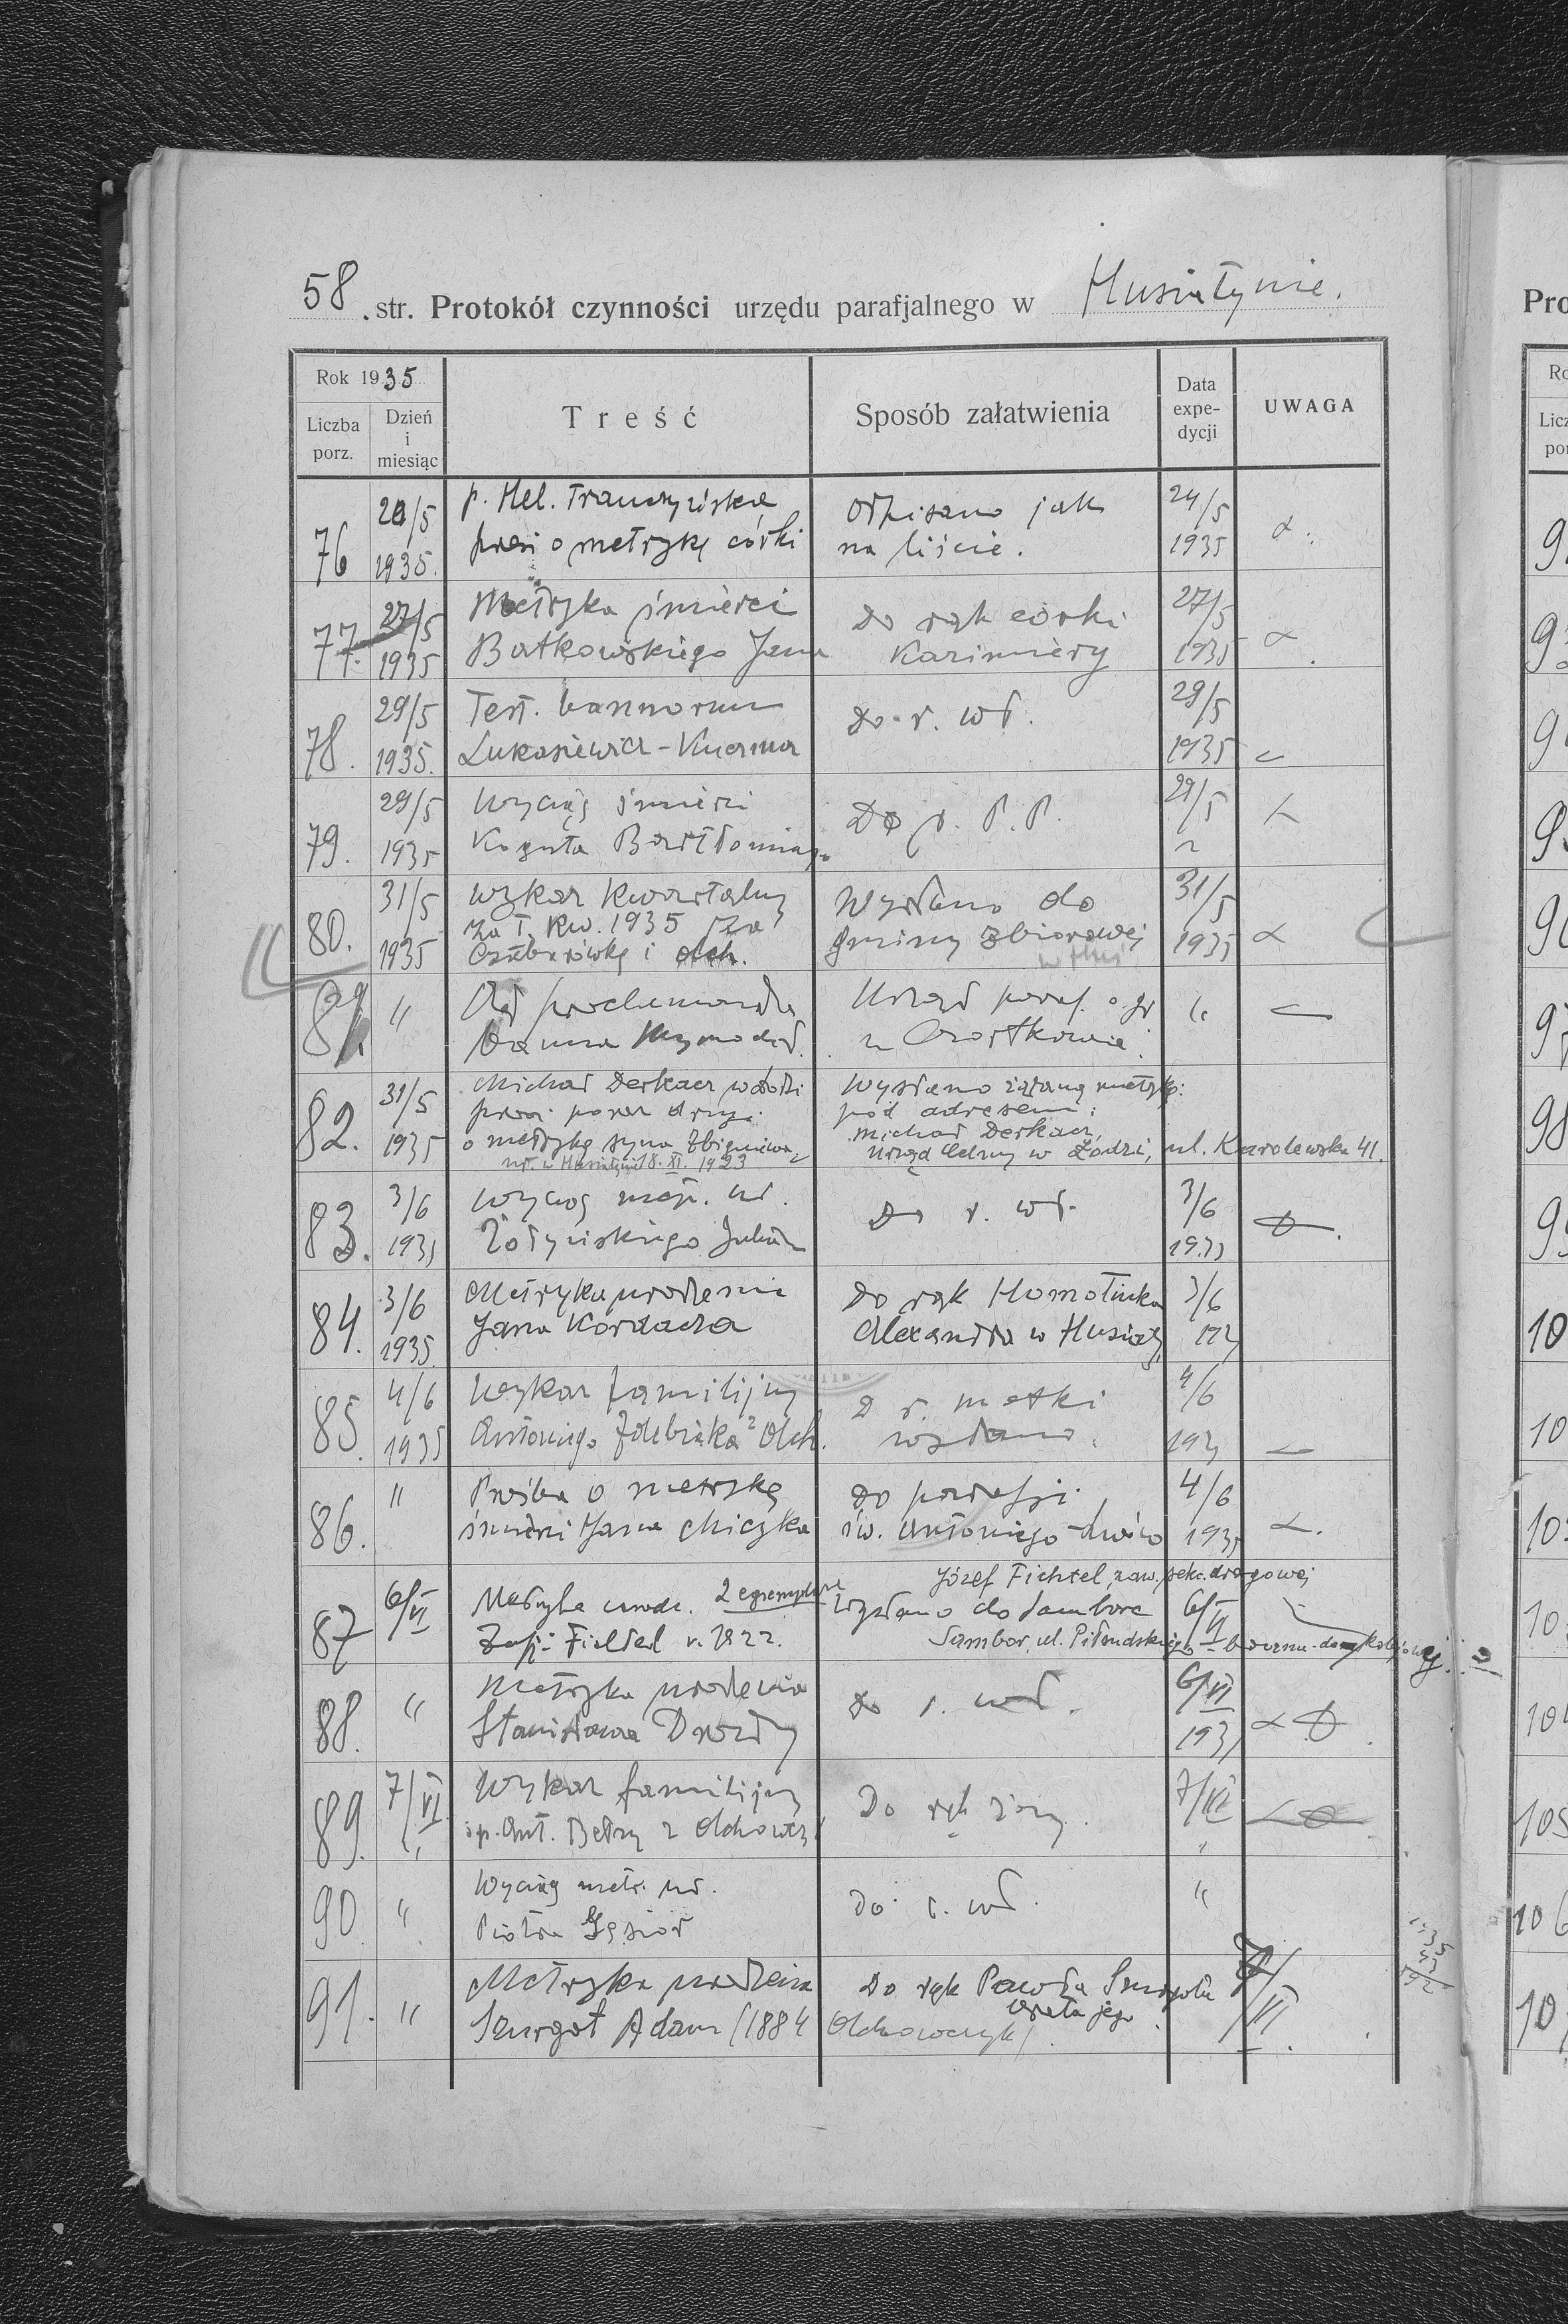 58. str. Protokół czynności urzędu parafjalnego w Husiatynie.
Rok 1935
Liczba porz.
Dzień i miesiąc
Treść
Sposób załatwienia
Data expe-dycji
UWAGA
76 20/5 1935.
p. Hel.
prosi o metrykę córki
Odpisano jak
na liście.
24/5 1935
77. 27/5 1935
Metryka śmierci
Batkowskiego Jana
Do rąk córki
Kazimiery
27/5 1935
78. 29/5 1935.
Test. bannorum
Łukasiewicz - Kuczma
do r. wł.
29/5 1935
79. 29/5 1935
Wyciąg śmierci
Koguta Bartłomieja
Do p. P.P.
29/5
80. 31/5 1935
Wykaz kwartalny
za I. kw. 1935 za
Czabarówkę i Olch.
Wysłano do
gminy zbiorowej
w Hus
31/5 1935
81. "
Urząd paraf. o. gr
w Czortkowie.
"
82. 31/5 1935
Michał Derkacz w Łodzi
prosi poraz drugi
o metrykę syna Zbigniewa
ur. w Husiatynie 18. XI. 1923
Wysłano żądaną metrykę
pod adresem:
Michał Derkacz,
Urząd Celny w Łodzi, ul. Karolewska 41.
83. 3/6 1935
Wyciąg metr. ur.
Żółyńskiego Juliana
Do r. wł.
3/6 1935
84. 3/6 1935.
Metryka urodzenia
Jana Kordacza
Do rąk Homotiuka
Alexandra w Husiat.
3/6
85. 4/6 1935
Wykaz familijny
Antoniego Zdebiaka z Olch.
D r. matki
wysłano.
4/6
86. "
Prośba o metrykę
śmierci Jana Miczyka
do parafji
św. Antoniego Lwów
4/6 1935
87 6/VI
Metryka urodz. 2 egzemplarze
Fichtel r. 1822.
Józef Fichtel, zaw. sekc. drogowej
Wysłano do Sambora
Sambor, ul. Piłsudskiego
6/VI
88. "
Metryka urodzenia
Stanisława Drozdy
do r. wł.
6/VI 193
89. 7/VI "
Wykaz familijny
śp. Ant. Betzy z Olchowcz
Do rąk żony
7/VI "
90 "
Wyciąg metr. ur.
Piotra Gąsior
do r. wł.
"
91. "
Metryka urodzenia
Szurgot Adam (1884
Do rąk Pawła Szurgota
brata jego
Olchowczyk
7/VI.
Pro